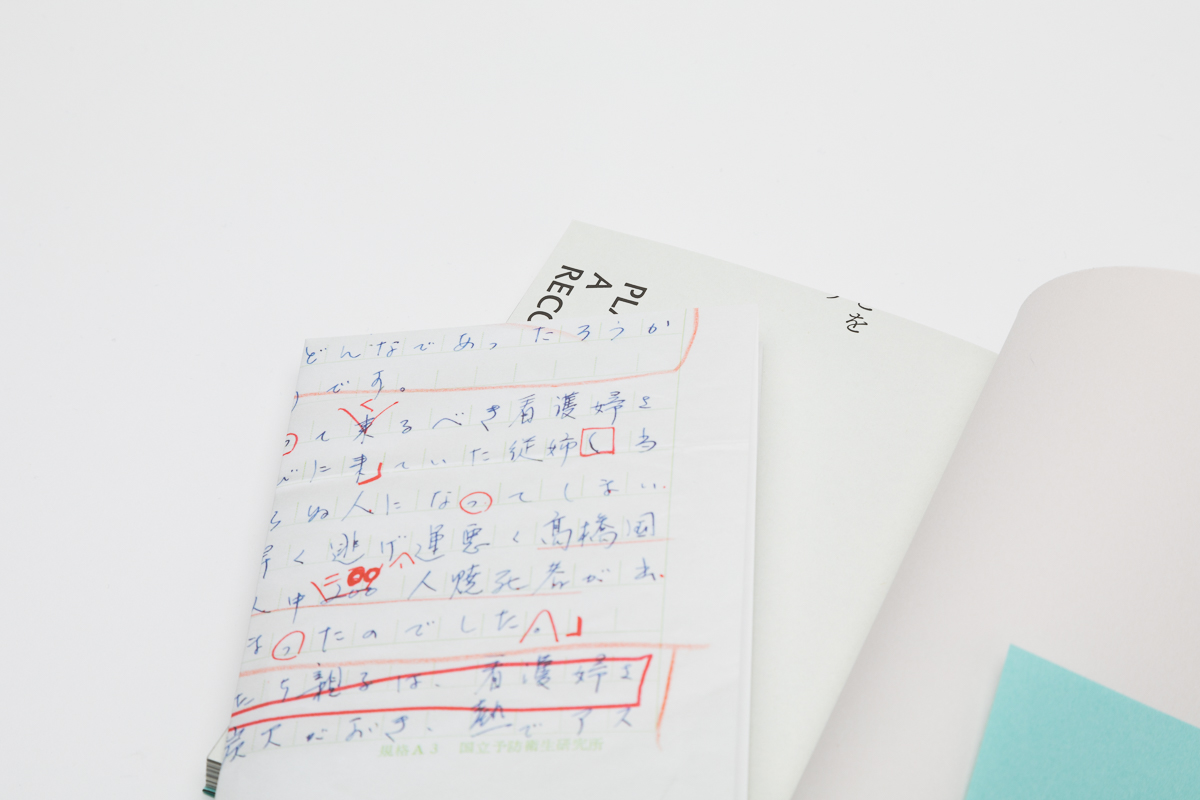 どんなであったろうか
です。
って来るべき看護婦と
に来ていた従姉く当
らぬ人になってしまい
早く逃げ運悪く高橋国
人中二00人焼死者が出
まったのでした。」
たち親子は、看護婦と
炭火におき、熱でアス
規格A3 国立予防衛生研究所
PL
A
RECO
を